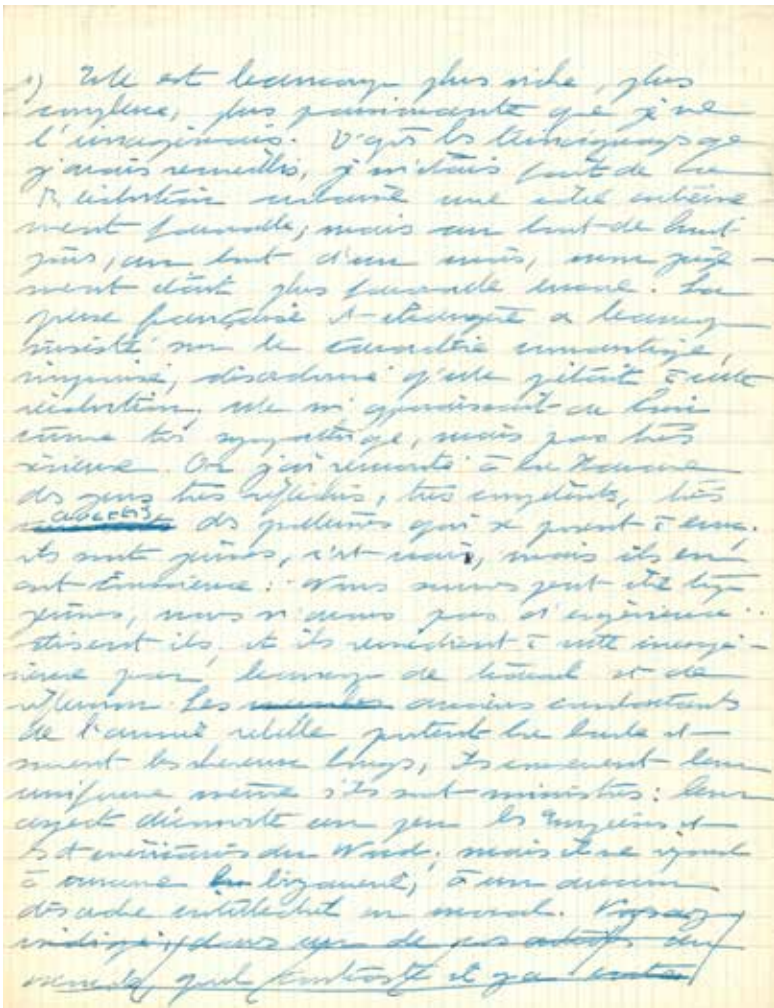 1) Elle est beaucoup plus riche, plus
complexe, plus passionnante que je ne
l'imaginais. D'après les témoignages que
j'avais recueillis, je m'étais fait de la
Révolution cubaine une idée entière-
ment favorable, mais au bout de huit
jours, au bout d'un mois, mon juge-
ment était plus favorable encore. La
presse française et étrangère a beaucoup
insisté sur le caractère romantique,
improvisé, désordonné qu'elle prêtait à cette
révolution; elle m'apparaissait de loin
comme très sympathique, mais pas très
sérieuse. Or j'ai rencontré à La Havane
des gens très réfléchis, très compétents, très
des problèmes qui se posent à eux.
ils sont jeunes, c'est vrai, mais ils en
ont conscience: Nous sommes peut être trop
jeunes, nous n'avons pas d'expérience
disent ils, et ils remédient à cette inexpé-
rience par beaucoup de travail et de
réflexion. Les anciens combattants
de l'armée rebelle portent la barbe et
souvent les cheveux longs, ils conservent leur
uniforme même s'ils sont ministres: leur
aspect déconcerte un peu les Européens et
les Américains du Nord; mais il ne répond
à aucune bizarrerie, à aucun
désordre intellectuel ou moral.
quel contraste il y a